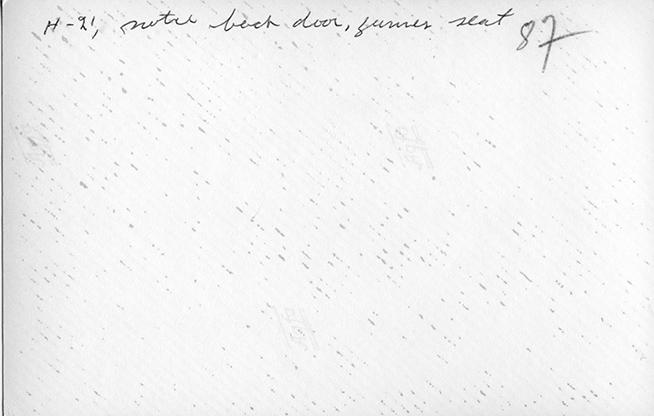 H-21, note back door, gunner seat
87